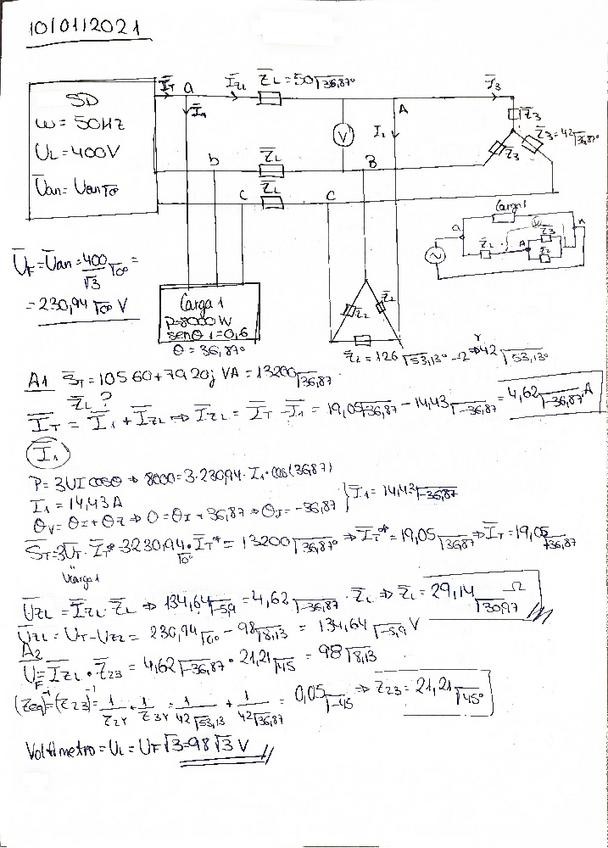 10/01/2021
SD
ω = 50Hz
UL = 400V
Ūan = Uan∠0°
ĪT a ĪZL Z̄L = 50∠36,87° Ī3
Ī1
A
Z̄3
Z̄3 = 42∠36,87°
Z̄3
V
I2
b Z̄L B
c Z̄L C
Carga 1
P=8000 W
senθ1 = 0,6
θ = 36,87°
Z̄2
Z̄2
Z̄2 = 126∠53,13° Ω ⇒ 42∠53,13°
Y
Carga 1
a
Z̄L
A
Z̄3
Z̄2
n
ŪF = Ūan = 400/√3 ∠0° =
= 230,94∠0° V
A1 S̄T = 10560 + 7920j VA = 13200∠36,87
Z̄L ?
ĪT = Ī1 + ĪZL ⇒ ĪZL = ĪT - Ī1 = 19,05∠-36,87 - 14,43∠-36,87 = 4,62∠-36,87 A
Ī1
P = 3UI cosθ ⇒ 8000 = 3·230,94·I1·cos(36,87)
I1 = 14,43 A
θV = θI + θZ ⇒ 0 = θI + 36,87 ⇒ θI = -36,87
Ī1 = 14,43∠-36,87
S̄T = 3ŪT·ĪT* = 3·230,94∠0°·ĪT* = 13200∠36,87° ⇒ ĪT* = 19,05∠36,87 ⇒ ĪT = 19,05∠-36,87
Ucarga1
ŪZL = ĪZL·Z̄L ⇒ 134,64∠-5,9 = 4,62∠-36,87·Z̄L ⇒ Z̄L = 29,14∠30,97 Ω
ŪZL = UT - UZ2 = 230,94∠0° - 98∠8,13 = 134,64∠-5,9 V
A2
ŪF = ĪZL·Z̄23 = 4,62∠-36,87·21,21∠45 = 98∠8,13
(Z̄eq)⁻¹ = (Z̄23)⁻¹ = 1/Z2Y + 1/Z3Y = 1/42∠53,13 + 1/42∠36,87 = 0,05∠-45 ⇒ Z̄23 = 21,21∠45°
Voltímetro = UL = UF√3 = 98√3 V